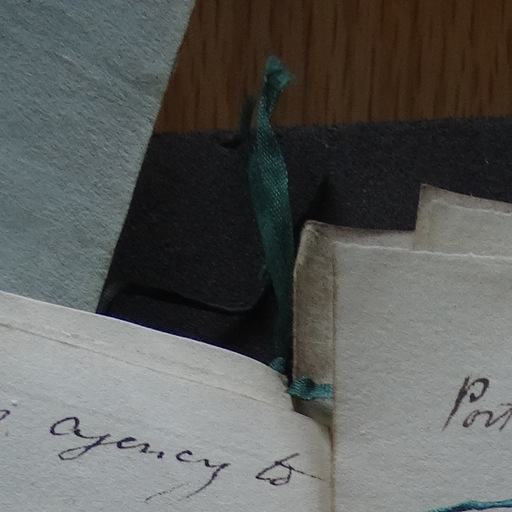 agency to
Port